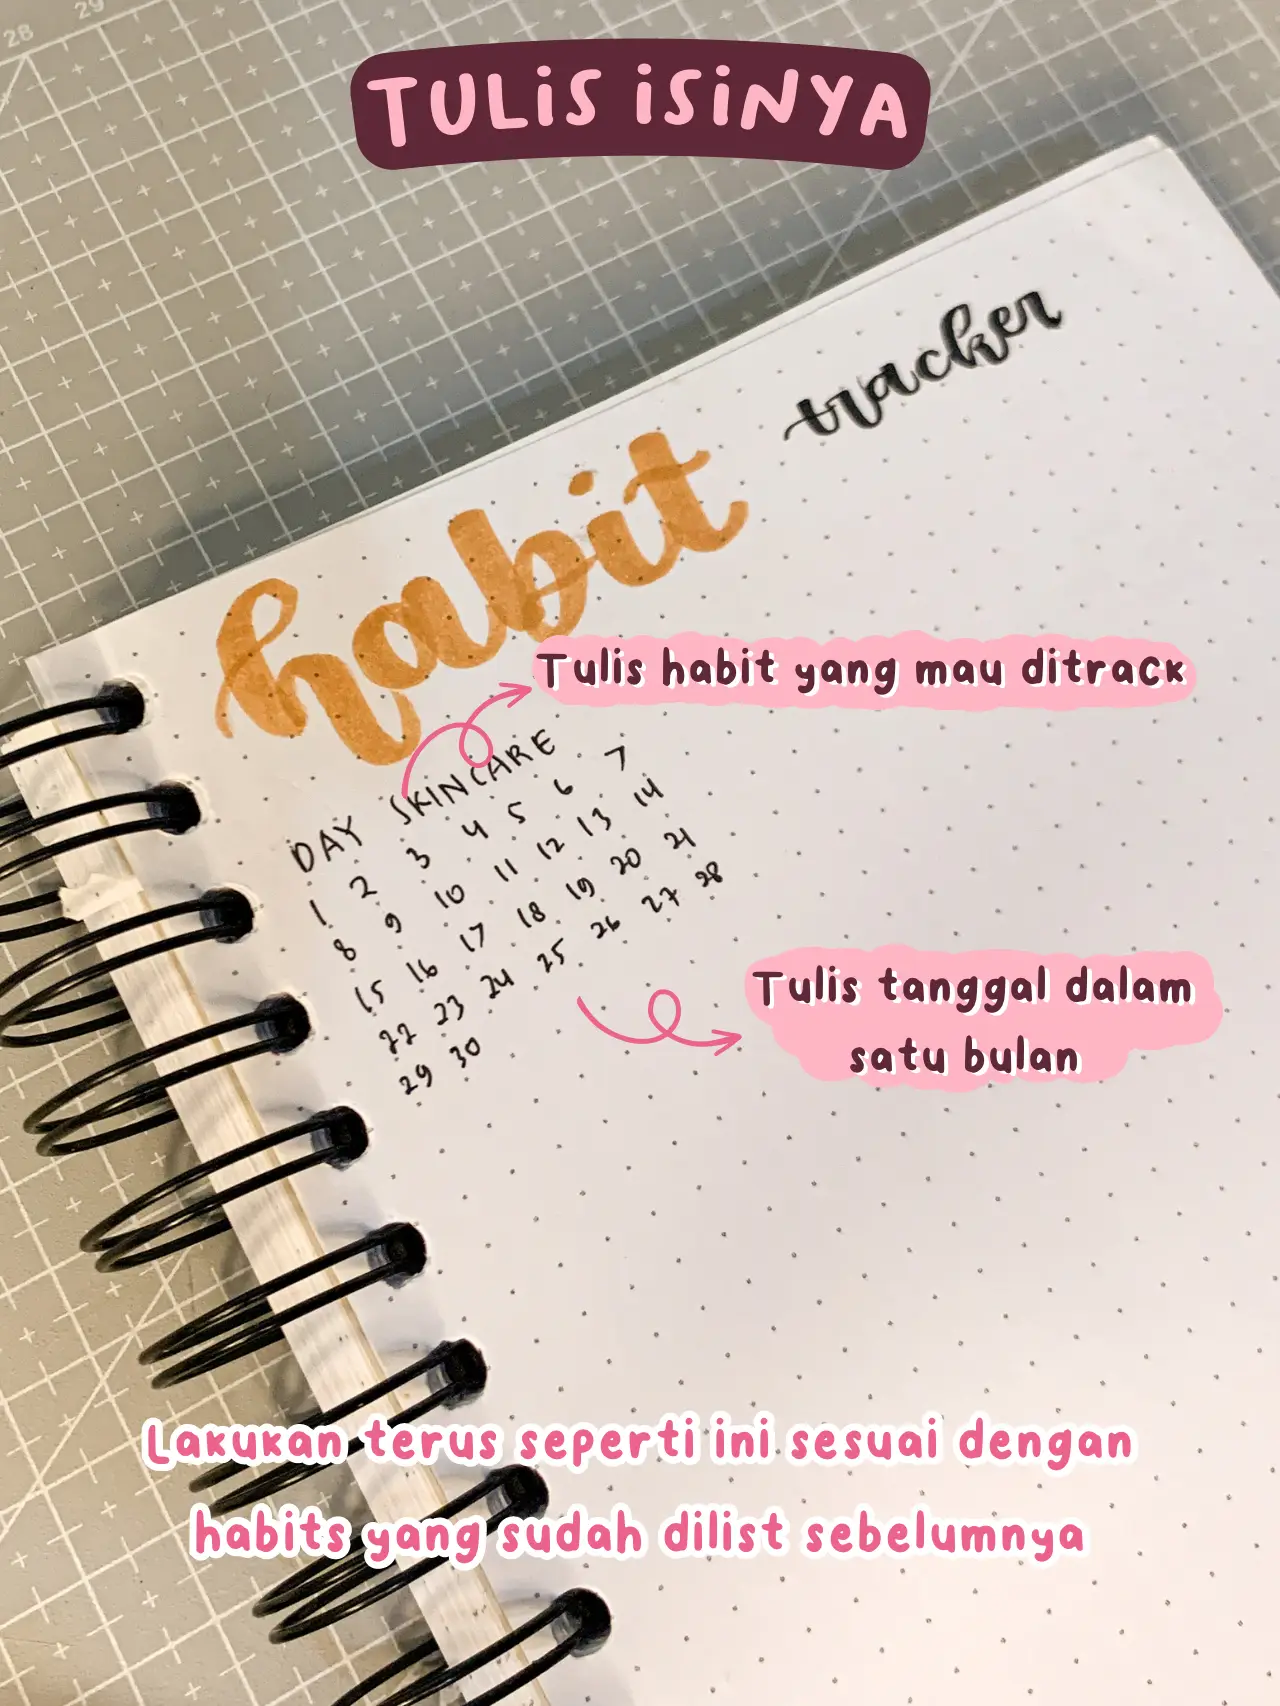 28
29
TULIS ISINYA
habit
tracker
Tulis habit yang mau ditrack
DAY SKINCARE
1 2 3 4 5 6 7
8 9 10 11 12 13 14
15 16 17 18 19 20 21
22 23 24 25 26 27 28
29 30
Tulis tanggal dalam
satu bulan
Lakukan terus seperti ini sesuai dengan
habits yang sudah dilist sebelumnya